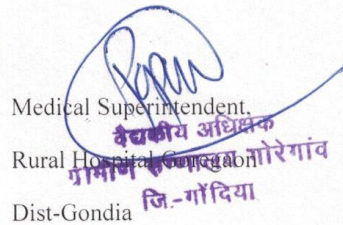 Medical Superintendent.
वैद्यकीय अधिक्षक
Rural Hospital Goregaon
ग्रामीण रुग्णालय गोरेगांव
Dist-Gondia
जि.-गोंदिया